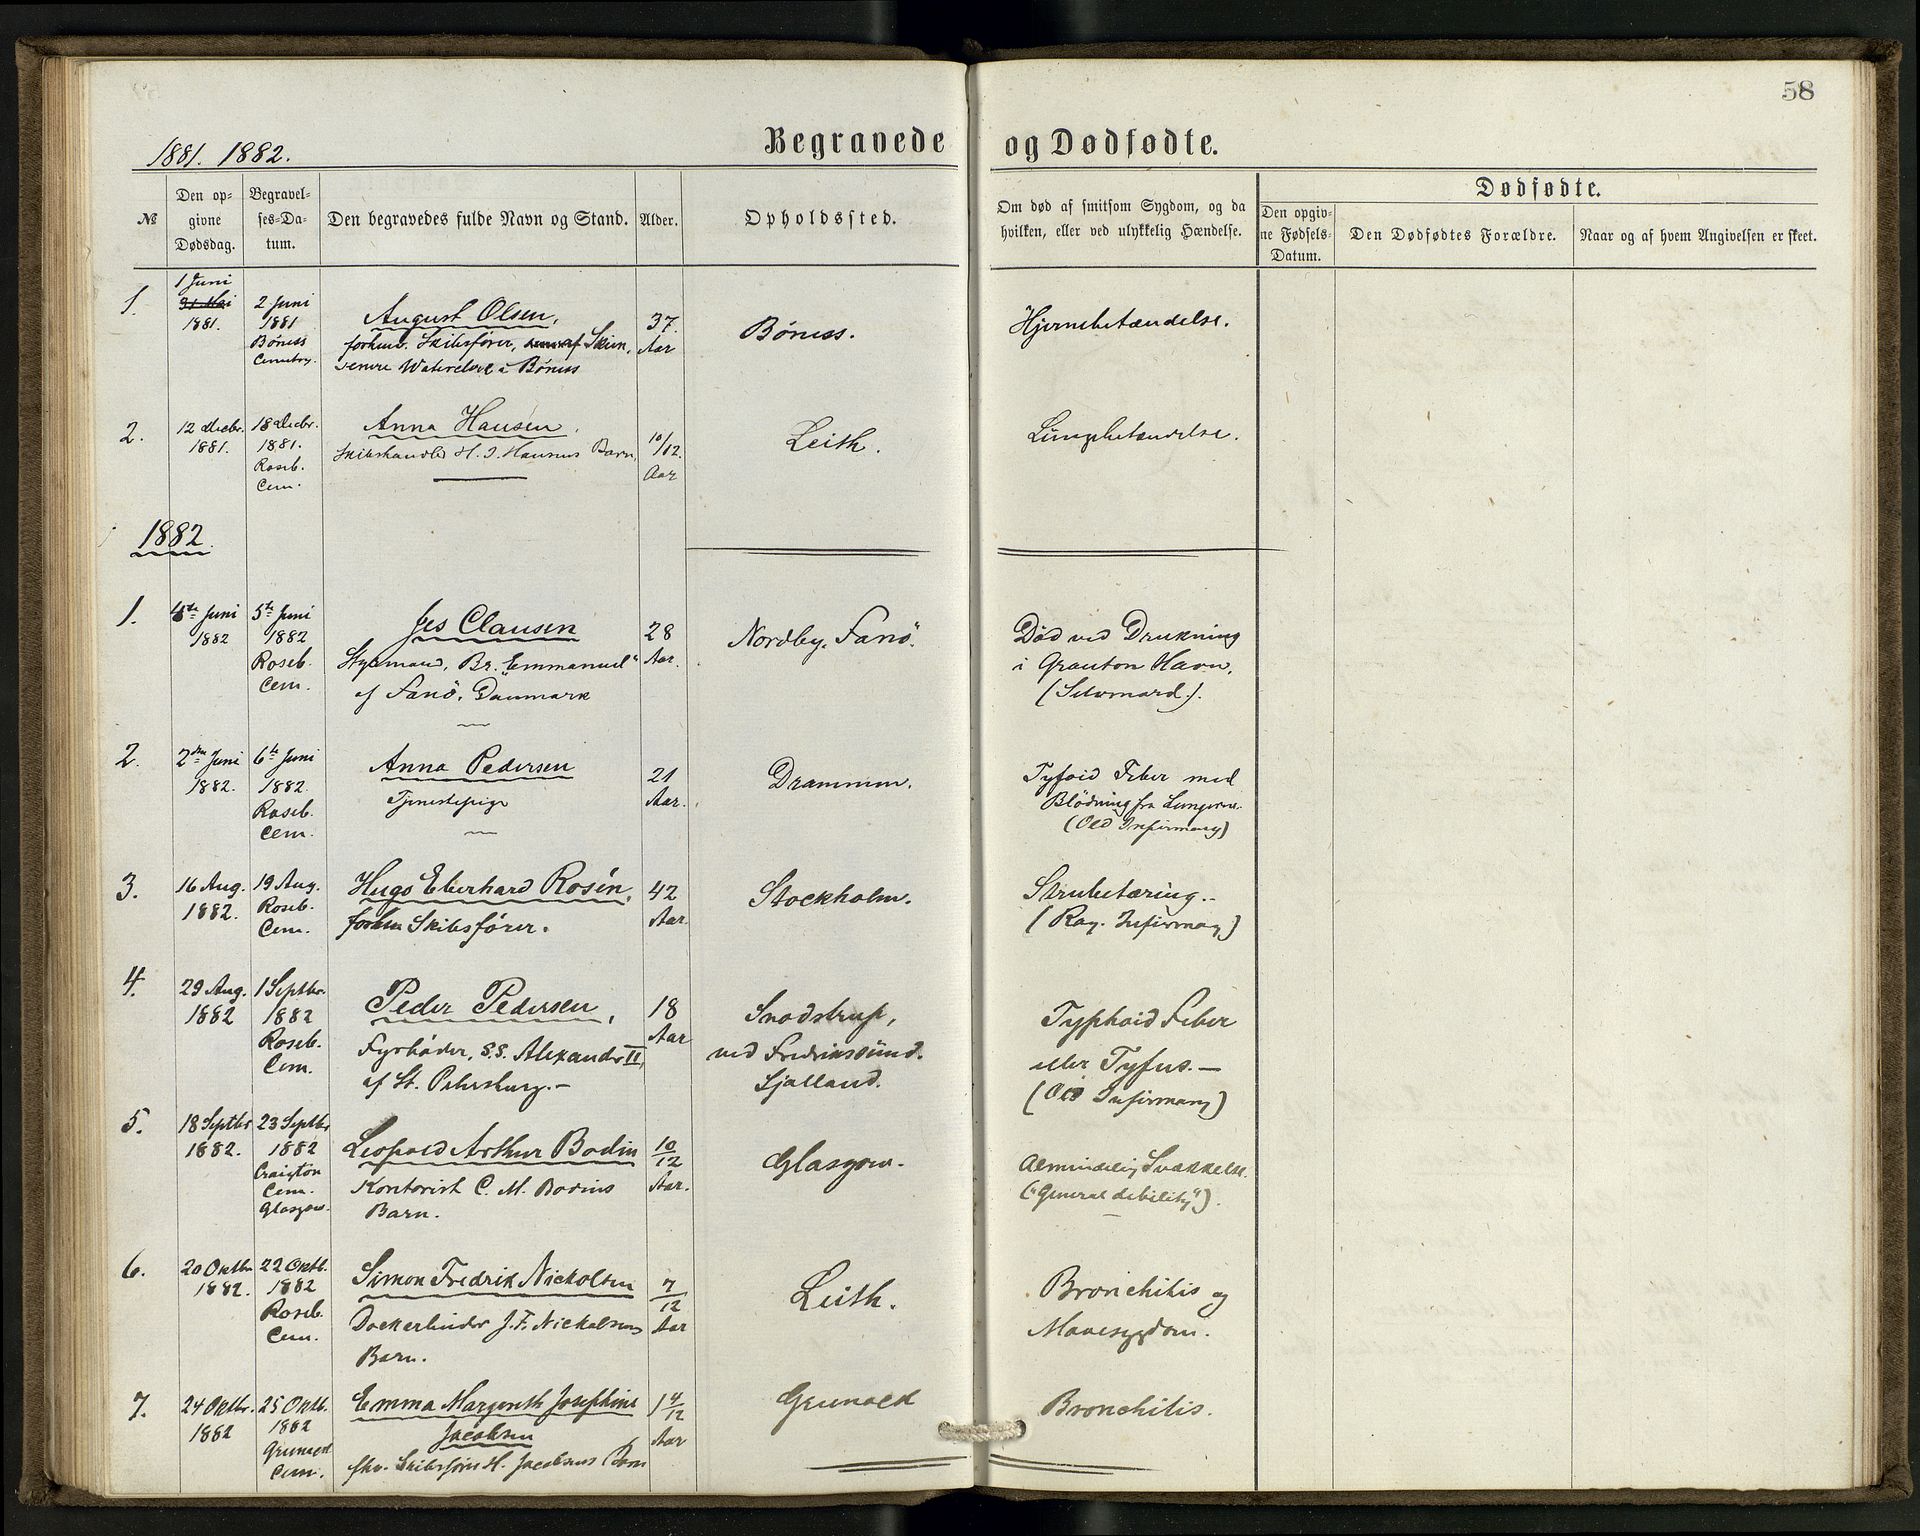 58
1881. 1882.
Begravede og Dødfødte.
№
Den op-
givne
Dødsdag.
Begravel-
ses-Da-
tum.
Den begravedes fulde Navn og Stand.
Alder.
Opholdssted.
Om død af smitsom Sygdom, og da
hvilken, eller ved ulykkelig Hændelse.
Dødfødte.
Den opgiv-
ne Fødsels-
Datum.
Den Dødfødtes Forældre.
Naar og af hvem Angivelsen er skeet.
1.
1 Juni
31 Mai
1881.
2 Juni
1881
Böness
Cemetry.
August Olsen,
forhenv. Skibsfører, af Skien,
senere i Böness
37.
Aar
Böness.
Hjernebetændelse.
2.
12 Decbr.
1881.
18 Decbr.
1881.
Roseb.
Cem.
Anna Hansen,
Skibshandler H. J. Hansens Barn,
10/12.
Aar
Leith.
Lungebetændelse.
1882
1.
4de Juni
1882
5te Juni
1882
Roseb.
Cem.
Jes Clausen
Styrmand, Br. „Emmanuel"
af Fanö, Danmark
28
Aar.
Nordby, Fanö.
Död ved Drukning
i Granton Havn.
(Selvmord.).
2.
2den Juni
1882.
6te Juni
1882.
Roseb.
Cem.
Anna Pedersen
Tjenestepige
21
Aar.
Drammen.
Tyfoid Feber med
Blödning fra Lungerne.
(Old Infirmary)
3.
16 Aug.
1882.
19 Aug.
Roseb.
Cem.
Hugo Eberhard Rosén,
forhen Skibsfører.
42
Aar
Stockholm.
Strubetæring.
(Roy. Infirmary)
4.
29 Aug.
1882
1 Septbr.
1882
Roseb.
Cem.
Peder Pedersen,
Fyrböder, S.S. Alexander II,
af St. Petersburg.-
18
Aar
Snodstrup,
ved Fredrikssund.
Sjælland.
Typhoid Feber
eller Tyfus.-
(Old Infirmary)
5.
18 Septbr
1882.
23 Septbr
1882
Craigton
Cem.
Glasgow.
Leopold Arthur Bodin
Kontorist C. M. Bodins
Barn.
10/12
Aar.
Glasgow.
Almindelig Svækkelse.
("General debility").
6.
20 Oktbr
1882.
22 Oktb.
1882
Roseb.
Cem.
Simon Fredrik Nickolsen
Dockarbeider J. F. Nickolsens
Barn.
7/12
Aar
Leith.
Bronchitis og
Mavesygdom.
7.
24 Oktbr.
1882
25 Oktb.
1882
Cem.
Emma Margreth Josephine
Jacobsen
fhv. Skibsfører H. Jacobsens Barn
1 4/12
Aar
Bronchitis.